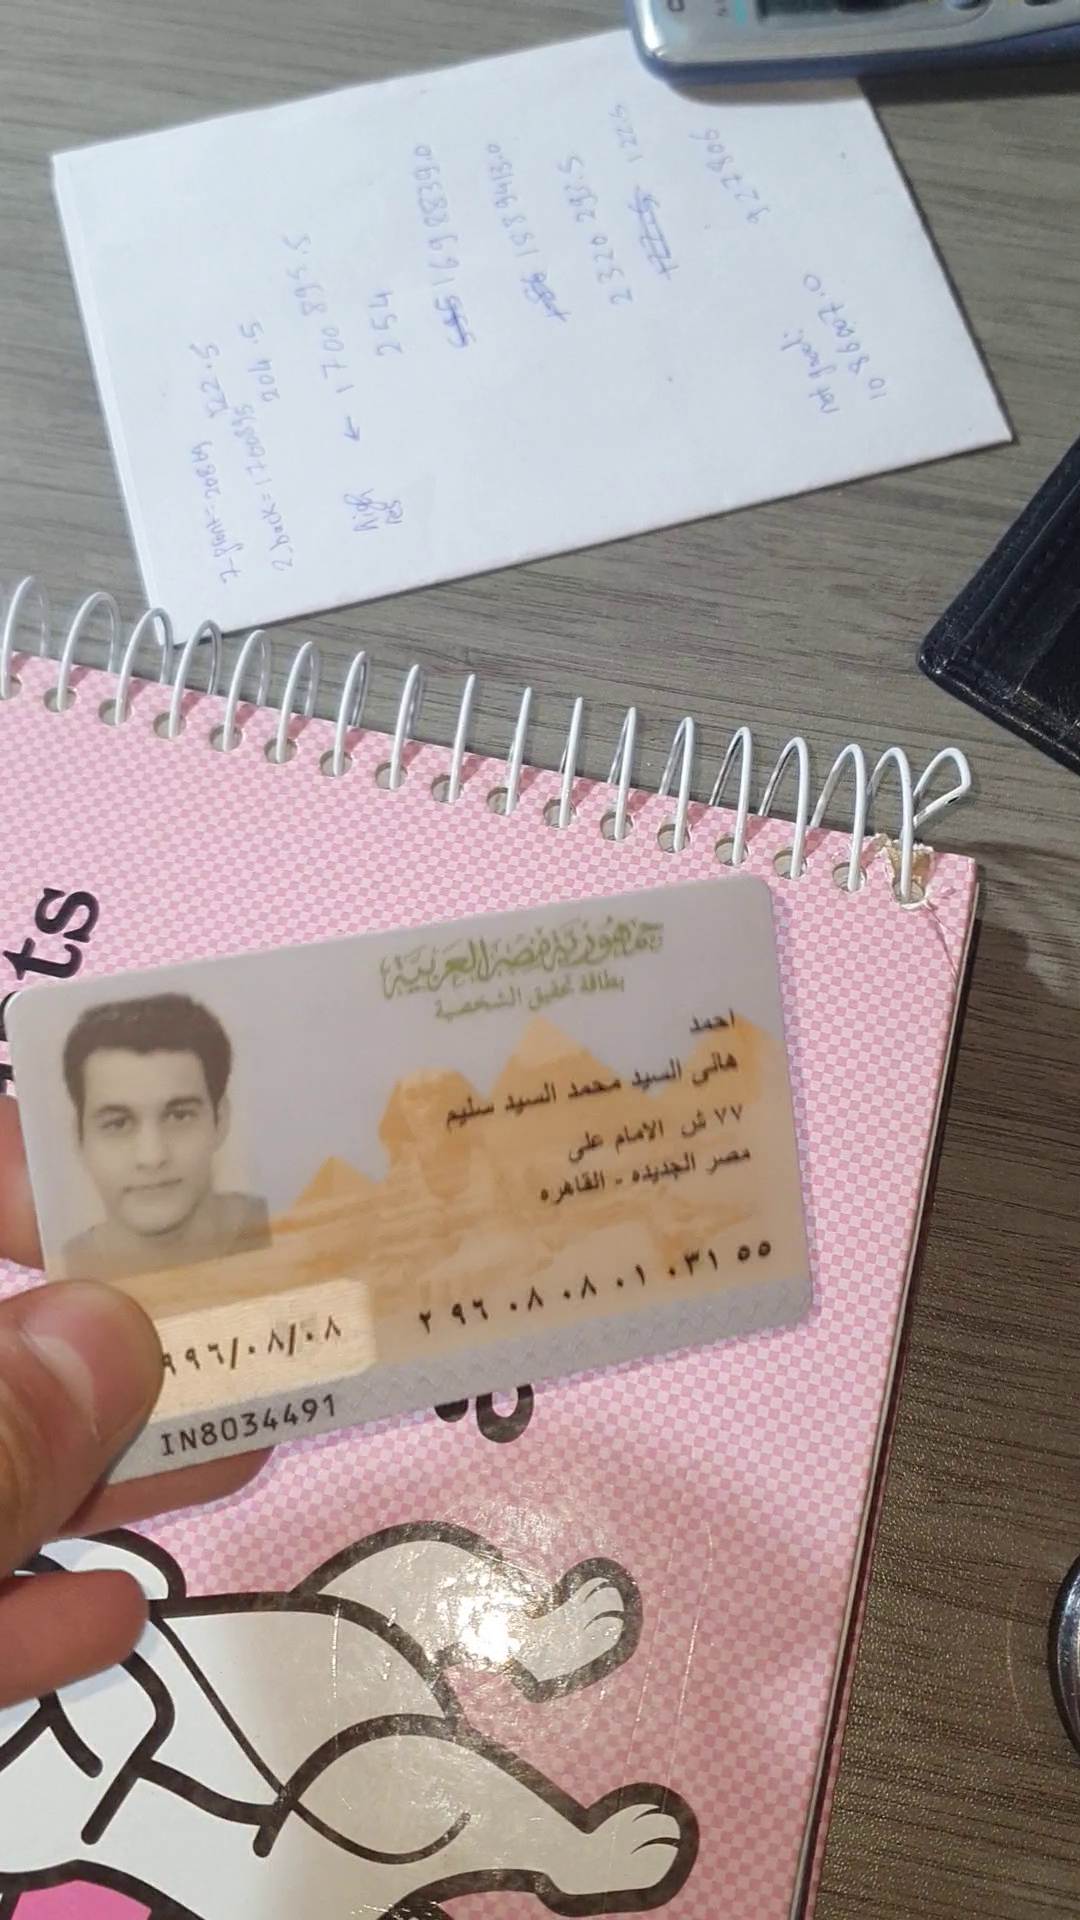 7. front = 20869 322.5
2, back = 1700895 204.5
high res ← 1700 895.5
254
1698839.0
1989413.0
2320 293.5
122.5
9,27806
not good:
1086007.0
ts
جمهورية مصر العربية
بطاقة تحقيق الشخصية
احمد
هانى السيد محمد السيد سليم
٧٧ ش الامام على
مصر الجديده - القاهره
٢ ٩٦ ٠٨ ٠٨ ٠١ ٠٣١ ٥٥
٩٩٦/٠٨/٠٨
IN8034491